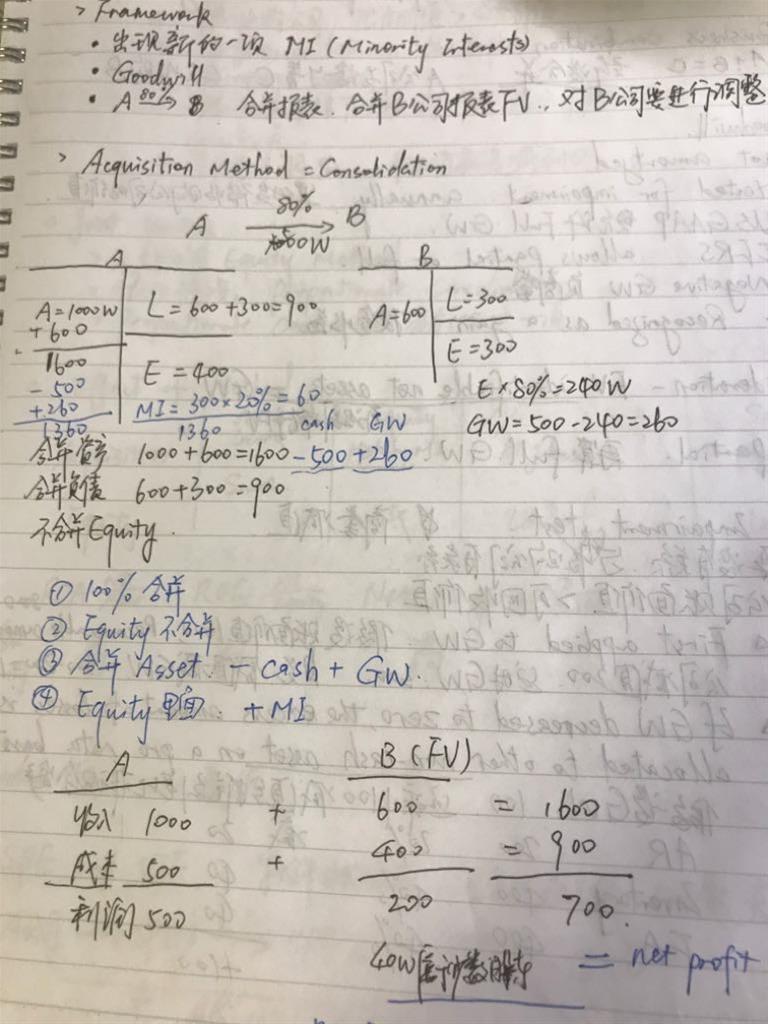 > Framework
• 出现新的一项 MI (Minority Interests)
• Goodwill
• A 80%→ B 合并报表. 合并B公司报表FV., 对B公司要进行调整
> Acquisition Method = Consolidation
A 80% 500W → B
A B
A=1000W L=600+300=900 A=600 L=300
+600
1600 E=400 E=300
-500 E×80%=240W
+260 MI=300×20%=60 cash GW GW=500-240=260
1360 1360
合并资产 1000+600=1600-500+260
合并负债 600+300=900
不合并Equity.
① 100%合并
② Equity不合并
③ 合并 Asset. - cash + GW.
④ Equity里面. +MI
A B(FV)
收入 1000 + 600 = 1600
成本 500 + 400 = 900
利润 500 200 700.
40W属于少数股东 = net profit